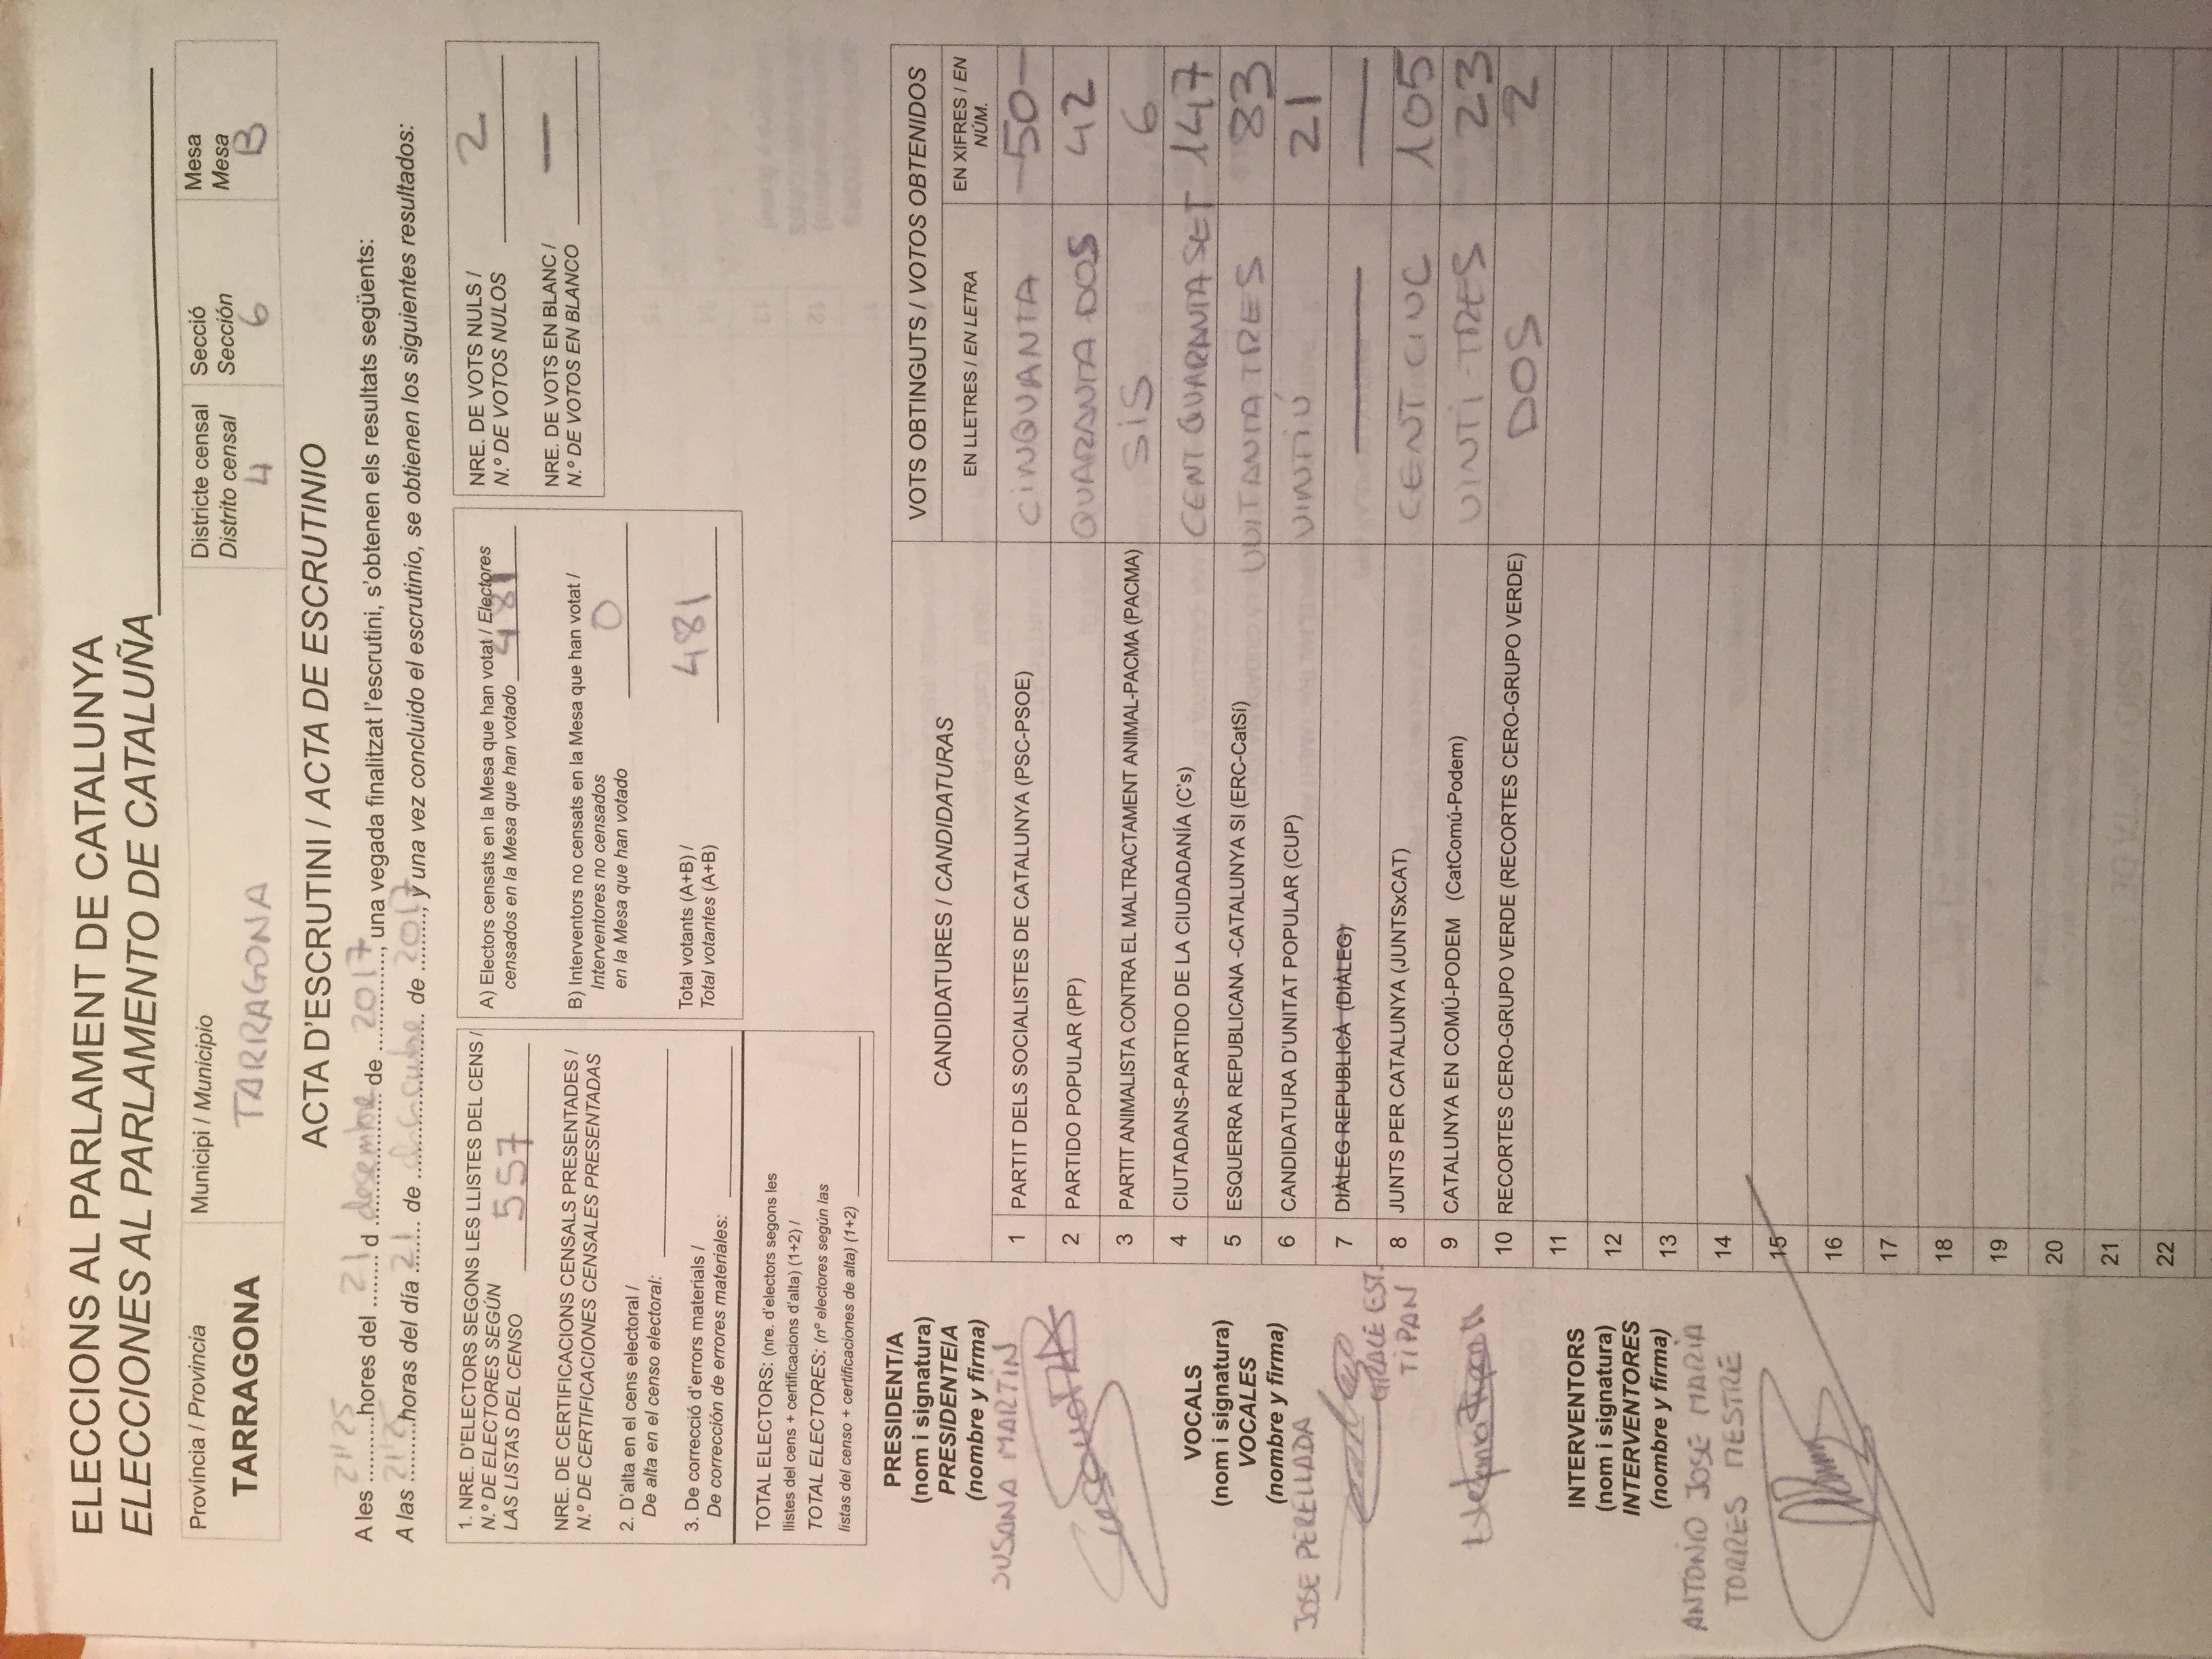 ELECCIONS AL PARLAMENT DE CATALUNYA
ELECCIONES AL PARLAMENTO DE CATALUÑA
Província / Provincia
TARRAGONA
Municipi / Municipio
TARRAGONA
Districte censal
Distrito censal
4
Secció
Sección
6
Mesa
Mesa
B
ACTA D'ESCRUTINI / ACTA DE ESCRUTINIO
A les 21'25 hores del 21 d desembre de 2017, una vegada finalitzat l'escrutini, s'obtenen els resultats següents:
A las 21'25 horas del día 21 de de 2017, y una vez concluido el escrutinio, se obtienen los siguientes resultados:
1. NRE. D'ELECTORS SEGONS LES LLISTES DEL CENS /
N.º DE ELECTORES SEGÚN
LAS LISTAS DEL CENSO 557
NRE. DE CERTIFICACIONS CENSALS PRESENTADES /
N.º DE CERTIFICACIONES CENSALES PRESENTADAS
2. D'alta en el cens electoral /
De alta en el censo electoral:
3. De correcció d'errors materials /
De corrección de errores materiales:
TOTAL ELECTORS: (nre. d'electors segons les
llistes del cens + certificacions d'alta) (1+2) /
TOTAL ELECTORES: (nº electores según las
listas del censo + certificaciones de alta) (1+2)
A) Electors censats en la Mesa que han votat / Electores
censados en la Mesa que han votado 481
B) Interventors no censats en la Mesa que han votat /
Interventores no censados
en la Mesa que han votado 0
Total votants (A+B) /
Total votantes (A+B) 481
NRE. DE VOTS NULS /
N.º DE VOTOS NULOS 2
NRE. DE VOTS EN BLANC /
N.º DE VOTOS EN BLANCO —
PRESIDENT/A
(nom i signatura)
PRESIDENTE/A
(nombre y firma)
SUSANA MARTIN
VOCALS
(nom i signatura)
VOCALES
(nombre y firma)
JOSE PERELLADA
GRACE EST.
TIPAN
INTERVENTORS
(nom i signatura)
INTERVENTORES
(nombre y firma)
ANTONIO JOSE MARIA
TORRES MESTRE
CANDIDATURES / CANDIDATURAS
VOTS OBTINGUTS / VOTOS OBTENIDOS
EN LLETRES / EN LETRA
EN XIFRES / EN
NÚM.
1 PARTIT DELS SOCIALISTES DE CATALUNYA (PSC-PSOE) CINQUANTA -50-
2 PARTIDO POPULAR (PP) QUARANTA DOS 42
3 PARTIT ANIMALISTA CONTRA EL MALTRACTAMENT ANIMAL-PACMA (PACMA) SIS 6
4 CIUTADANS-PARTIDO DE LA CIUDADANÍA (C's) CENT QUARANTA SET 147
5 ESQUERRA REPUBLICANA -CATALUNYA SI (ERC-CatSí) VUITANTA TRES 83
6 CANDIDATURA D'UNITAT POPULAR (CUP) VINTIÚ 21
7 DIÀLEG REPUBLICÀ (DIÀLEG) — —
8 JUNTS PER CATALUNYA (JUNTSxCAT) CENT CINC 105
9 CATALUNYA EN COMÚ-PODEM (CatComú-Podem) VINTI-TRES 23
10 RECORTES CERO-GRUPO VERDE (RECORTES CERO-GRUPO VERDE) DOS 2
11
12
13
14
15
16
17
18
19
20
21
22